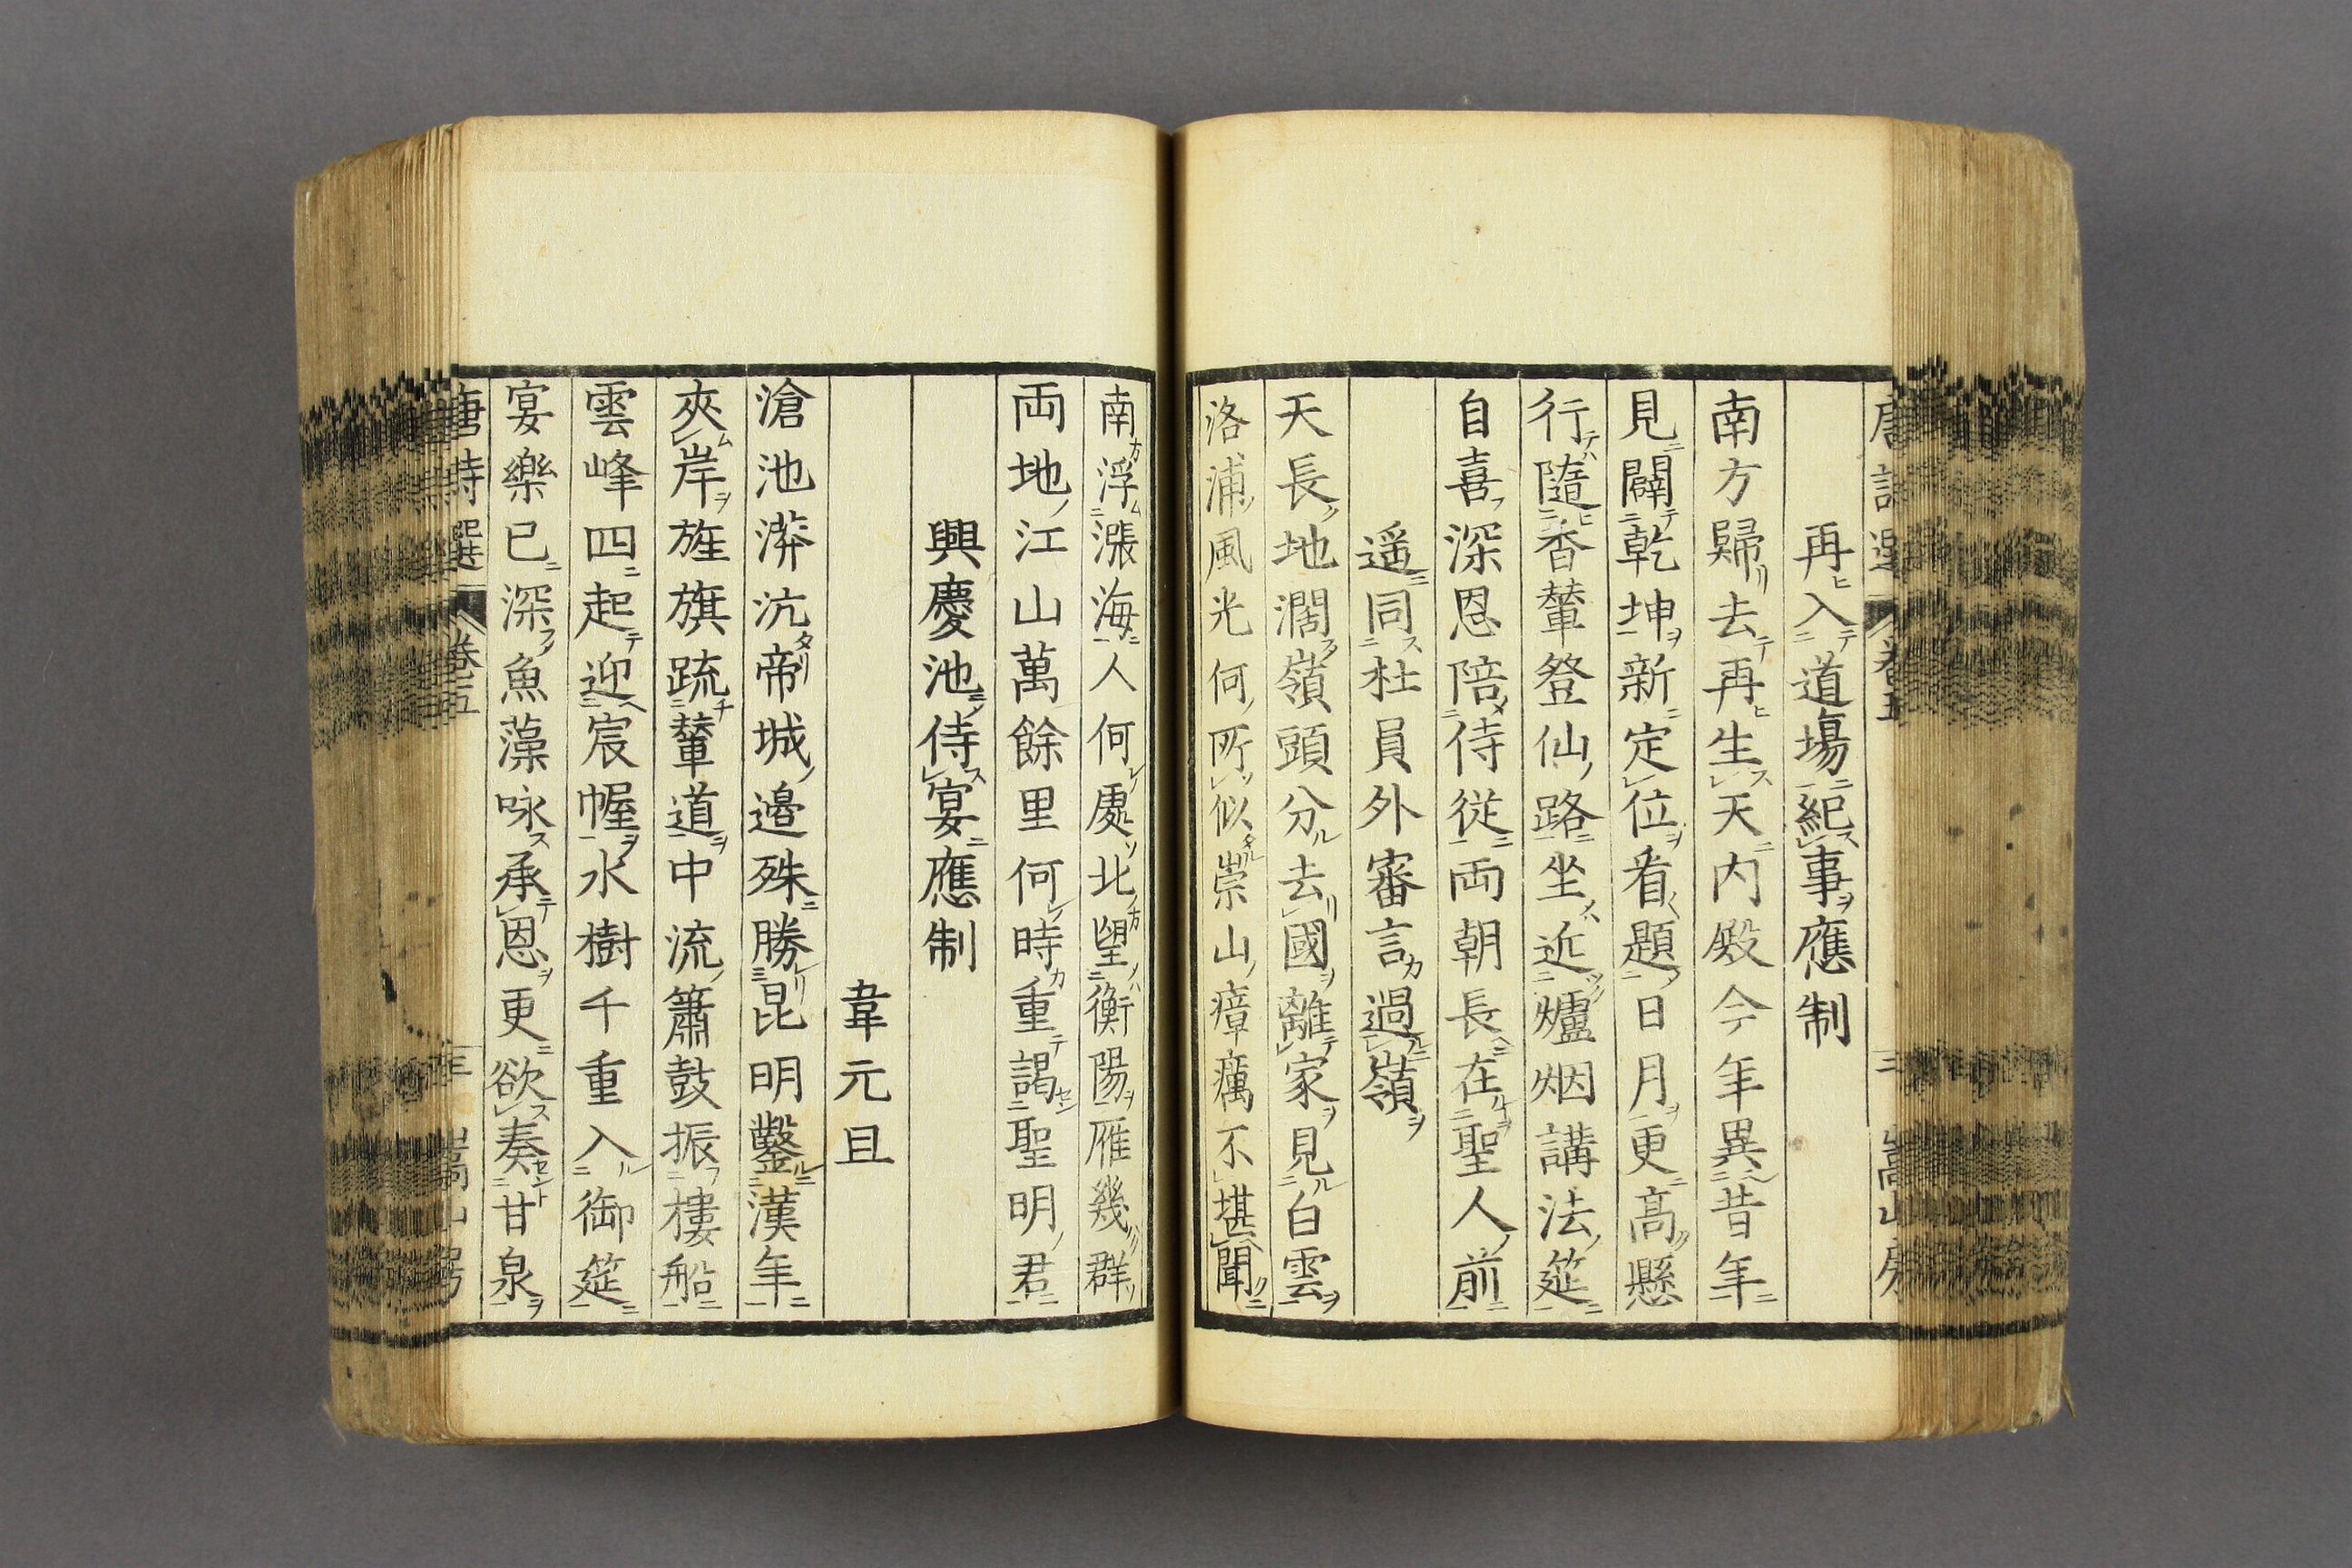 唐詩選 卷五 三 嵩山房
再入道場紀事應制
南方歸去再生天内殿今年異昔年
見闢乾坤新定位看題日月更高懸
行隨香輦登仙路坐近爐烟講法筵
自喜深恩陪侍從両朝長在聖人前
遥同杜員外審言過嶺
天長地濶嶺頭分去國離家見白雲
洛浦風光何所似崇山瘴癘不堪聞
南浮漲海人何處北望衡陽雁幾群
両地江山萬餘里何時重謁聖明君
興慶池侍宴應制
韋元旦
滄池漭沆帝城邊殊勝昆明鑿漢年
夾岸旌旗疏輦道中流簫鼓振樓船
雲峰四起迎宸幄水樹千重入御筵
宴樂已深魚藻咏承恩更欲奏甘泉
唐詩選 卷五 三 嵩山房